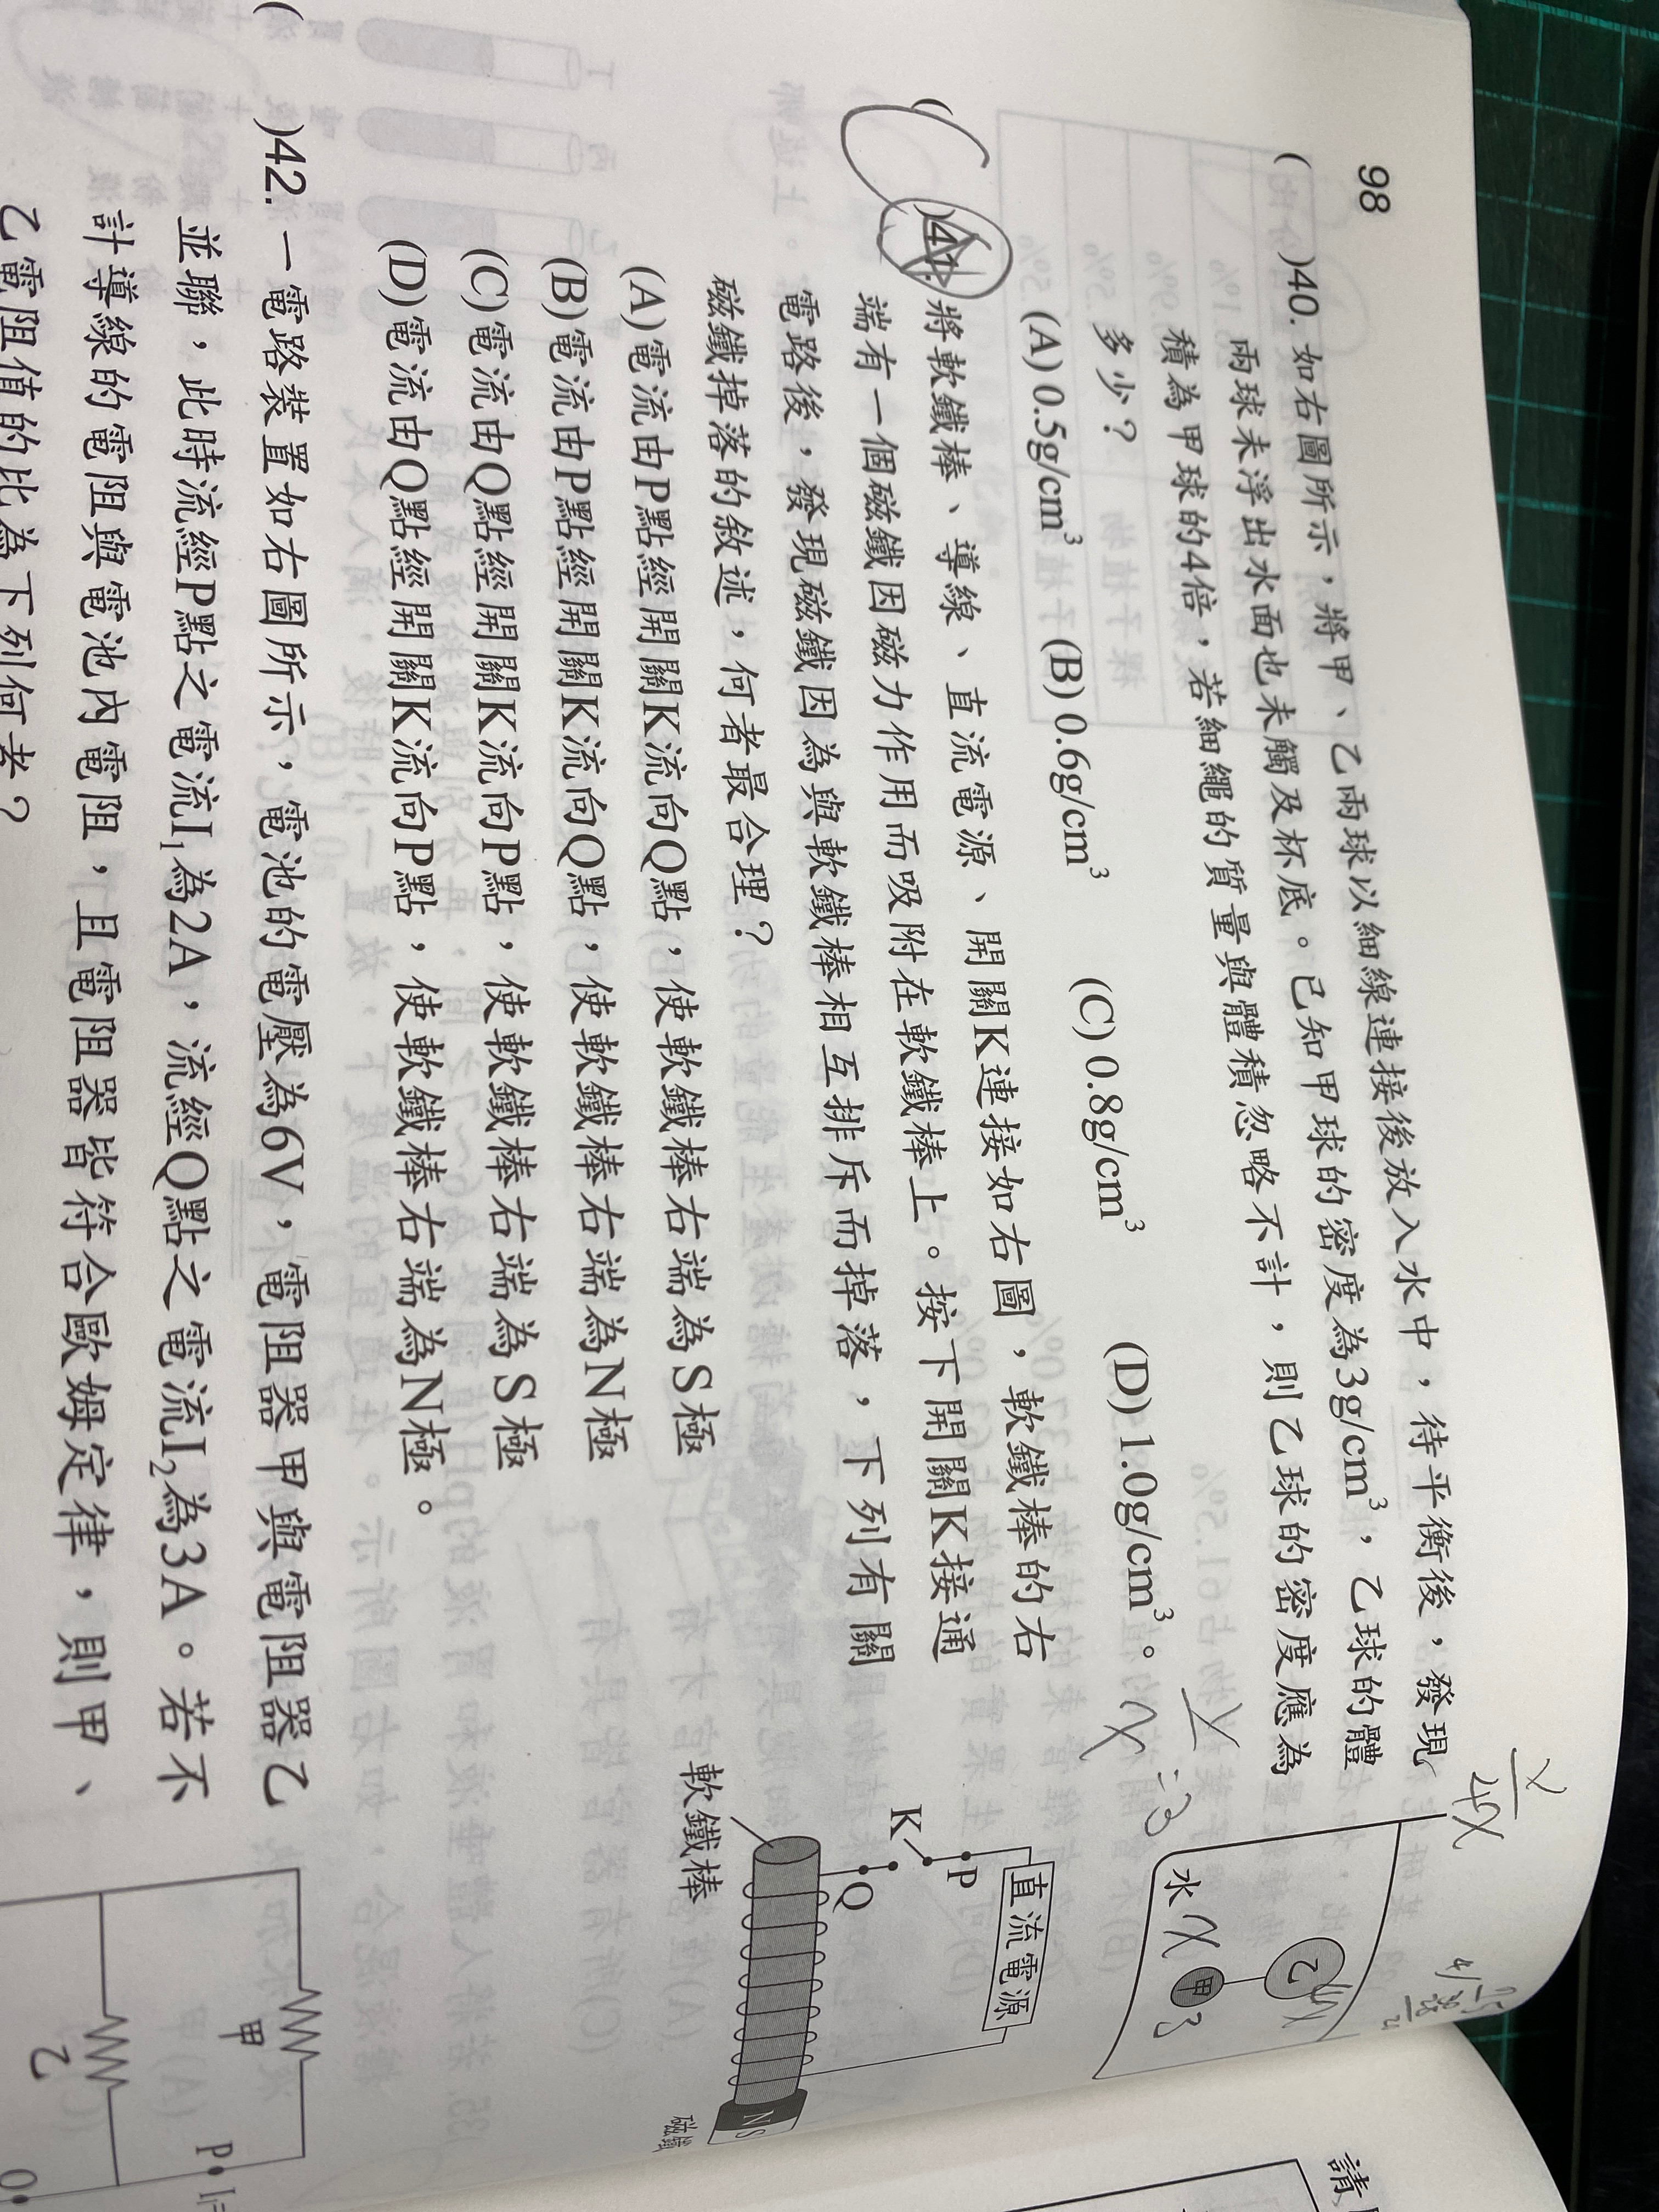 98
( )40. 如右圖所示，將甲、乙兩球以細線連接後放入水中，待平衡後，發現
兩球未浮出水面也未觸及杯底。已知甲球的密度為3g/cm³，乙球的體
積為甲球的4倍，若細繩的質量與體積忽略不計，則乙球的密度應為
多少？
(A) 0.5g/cm³ (B) 0.6g/cm³ (C) 0.8g/cm³ (D) 1.0g/cm³。
水
乙
甲
3
( )41. 將軟鐵棒、導線、直流電源、開關K連接如右圖，軟鐵棒的右
端有一個磁鐵因磁力作用而吸附在軟鐵棒上。按下開關K接通
電路後，發現磁鐵因為與軟鐵棒相互排斥而掉落，下列有關
磁鐵掉落的敘述，何者最合理？
(A)電流由P點經開關K流向Q點，使軟鐵棒右端為S極
(B)電流由P點經開關K流向Q點，使軟鐵棒右端為N極
(C)電流由Q點經開關K流向P點，使軟鐵棒右端為S極
(D)電流由Q點經開關K流向P點，使軟鐵棒右端為N極。
直流電源
P
K
Q
軟鐵棒
N S
磁鐵
( )42. 一電路裝置如右圖所示，電池的電壓為6V，電阻器甲與電阻器乙
並聯，此時流經P點之電流I₁為2A，流經Q點之電流I₂為3A。若不
計導線的電阻與電池內電阻，且電阻器皆符合歐姆定律，則甲、
乙電阻值的比為下列何者？
甲
乙
P
請